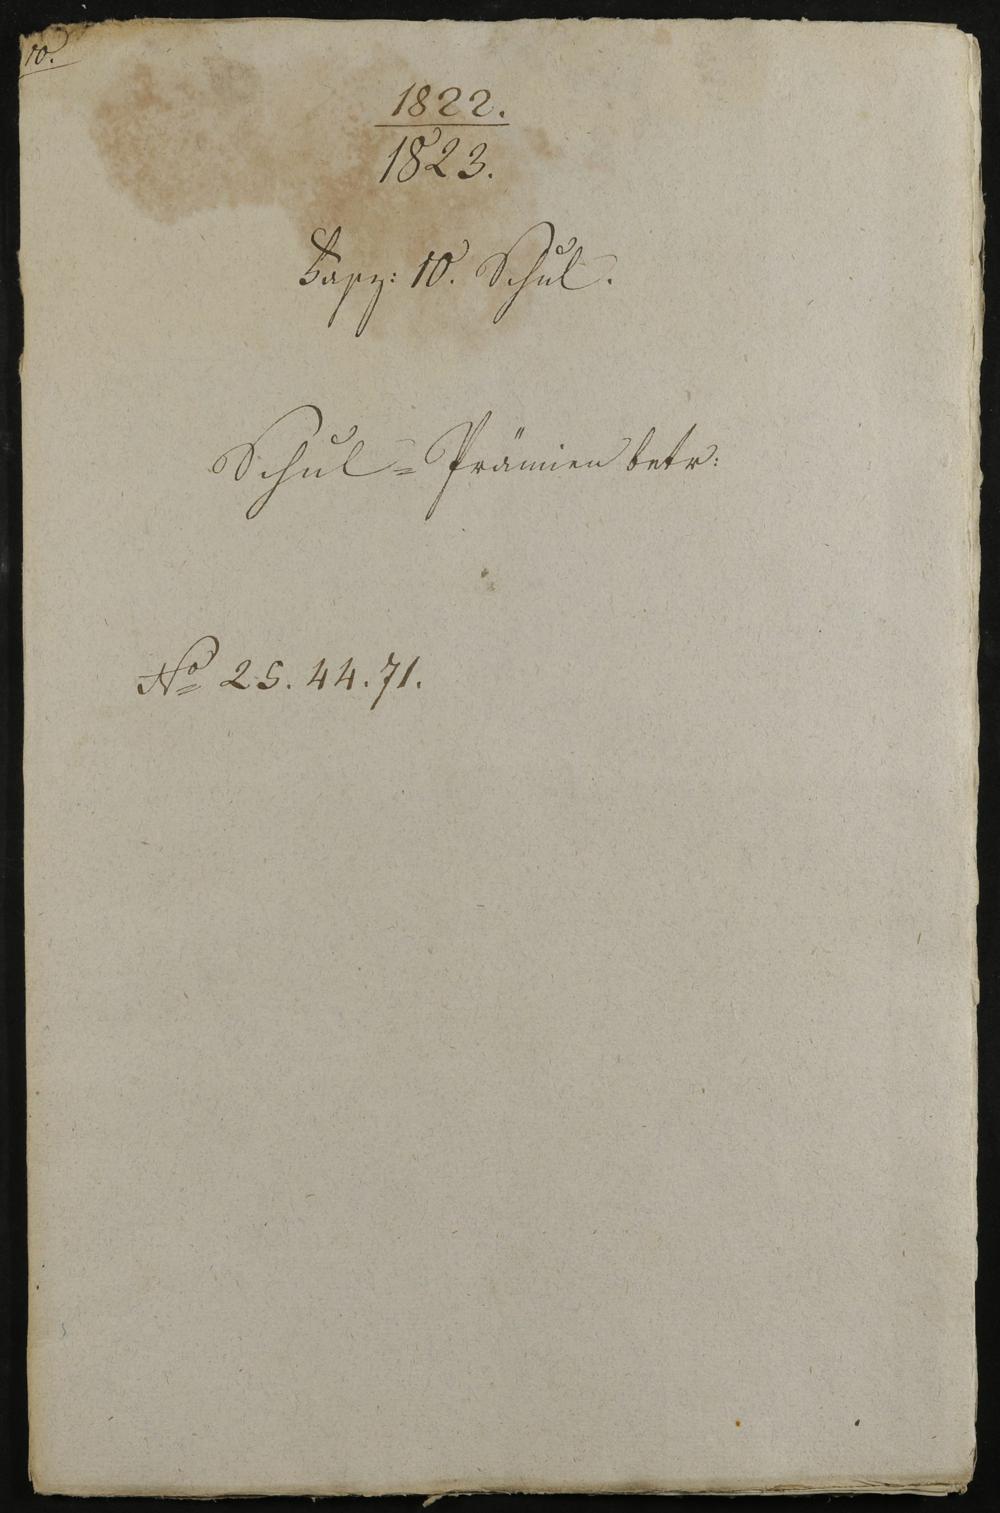 10.
1822.
1823.
Fasz: 10. Schul.
Schul = Prämien betr:
No 25. 44. 71.